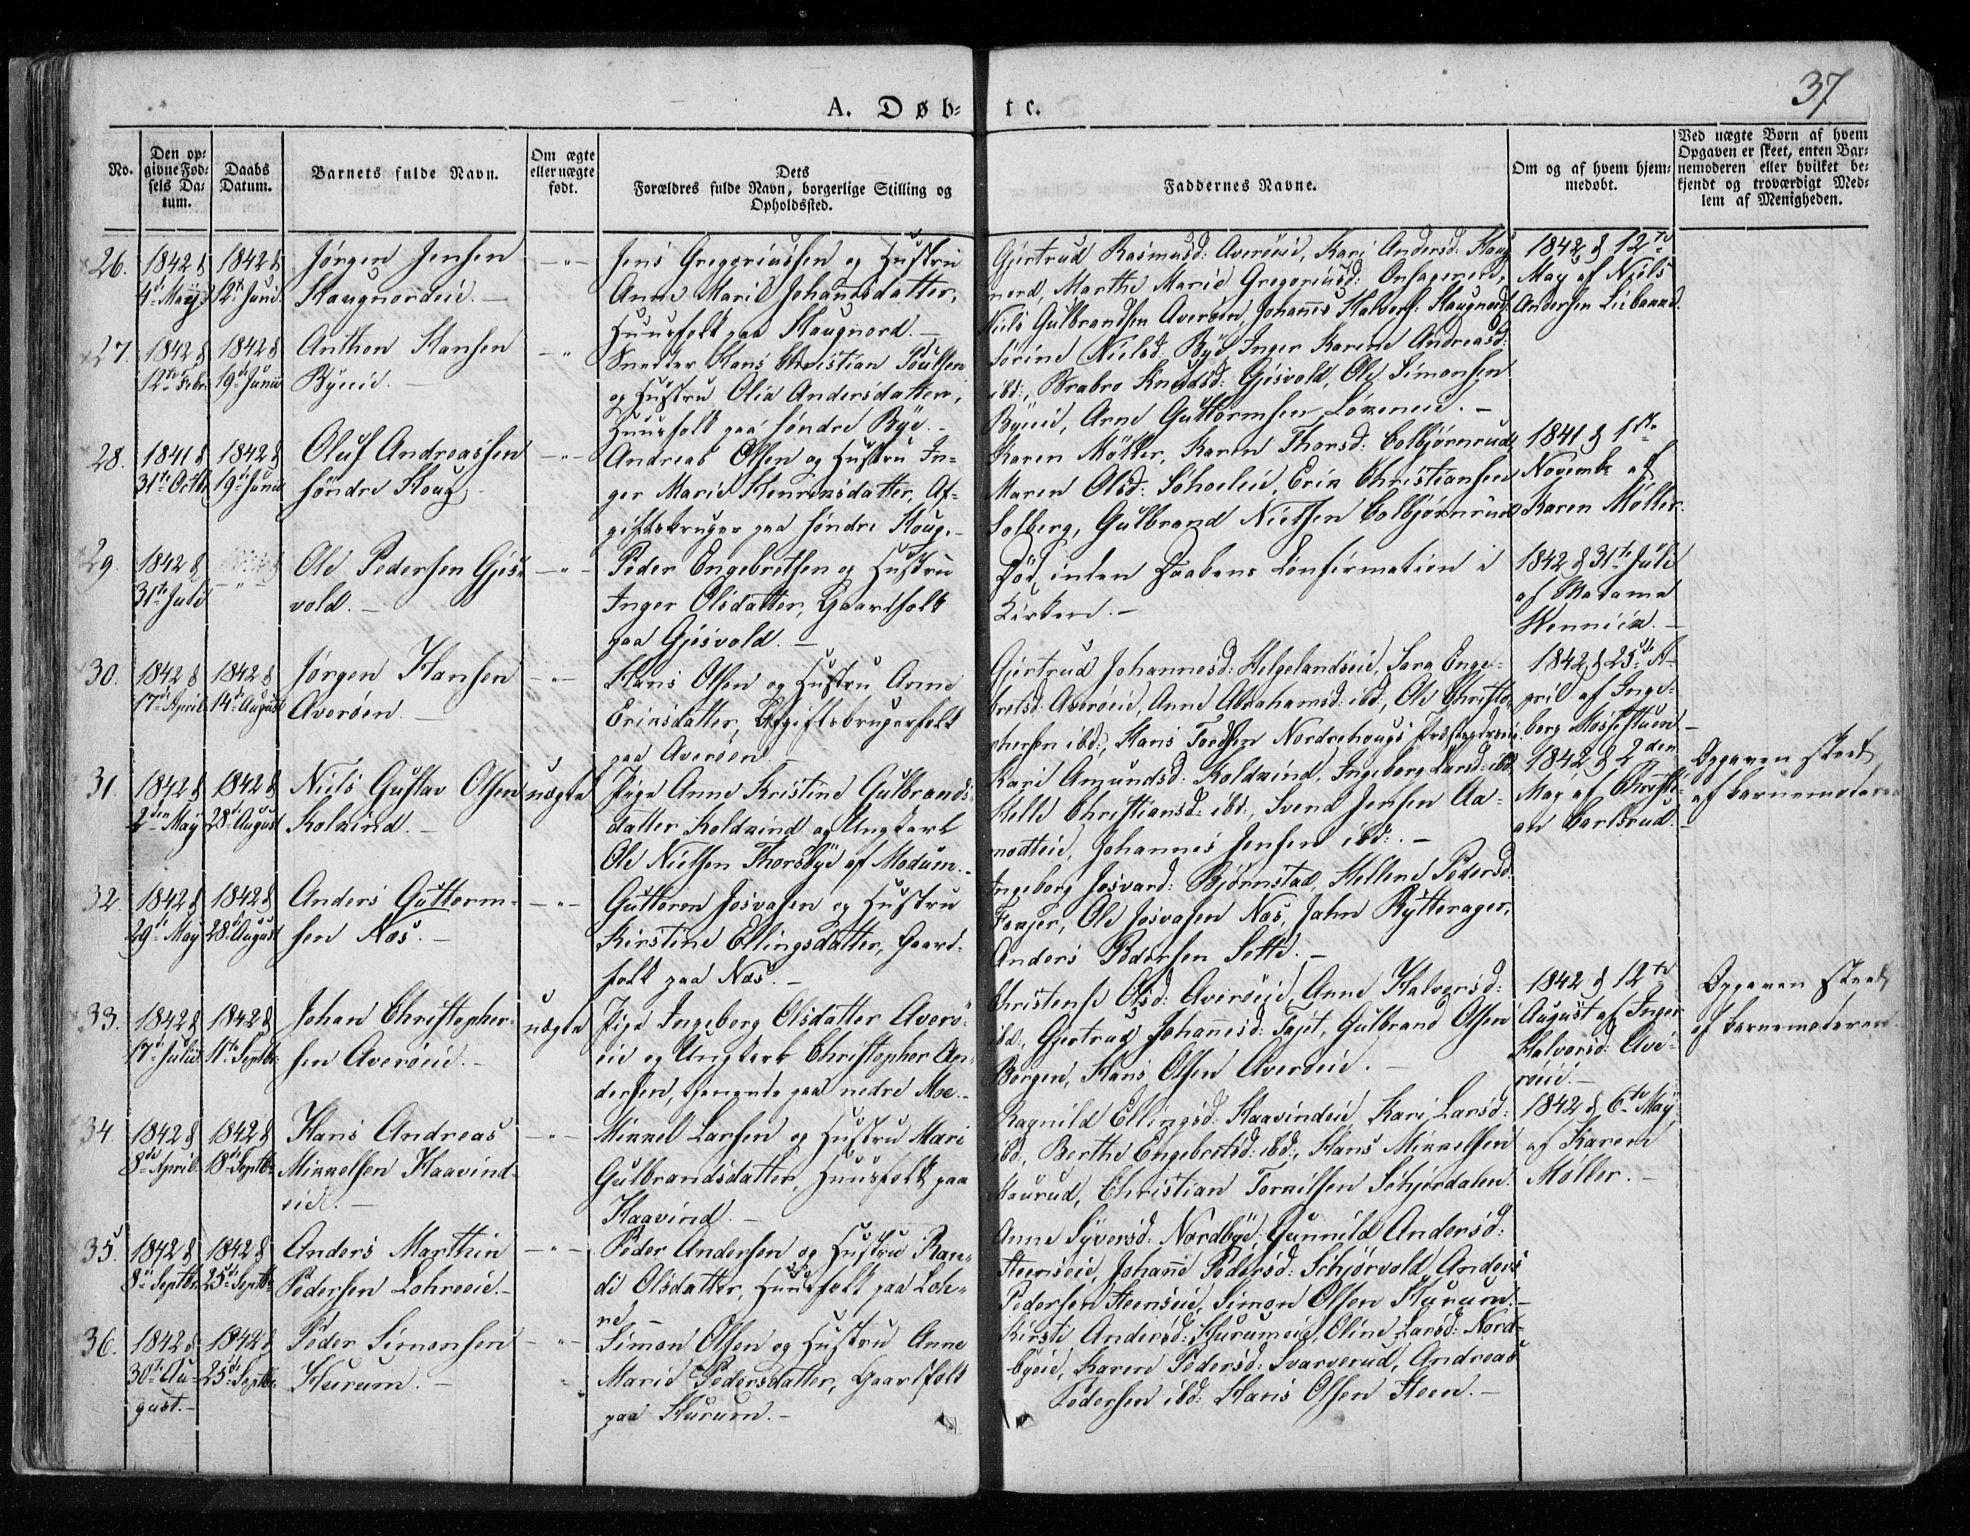 37
A. Døb- te.
No.
Den op-
givne Fød-
sels Da-
tum.
Daabs
Datum.
Barnets fulde Navn.
Om ægte
eller uægte
født.
Dets
Forældres fulde Navn, borgerlige Stilling og
Opholdssted.
Faddernes Navne.
Om og af hvem hjem-
medøbt.
Ved uægte Børn af hvem
Opgaven er skeet, enten Bar-
nemoderen eller hvilket be-
kjendt og troværdigt Med-
lem af Menigheden.
26.
1842 d
4de May
1842 d
12te Juni
Jørgen Jensen
Haugnordeie. —
— " —
Jens Gregoriussen og Hustru
Anne Marie Johannesdatter,
Huusfolk paa Haugnord. —
Gjertrud Rasmusd: Averøeie, Kari Andersd: Haug
nord, Marthe Marie Gregoriusd:
Niels Gulbrandsen Averøen, Johannes Halvors: Haugnord
1842 d 12te
May af Niels
Andersen
27.
1842 d
12te Febr.
1842 d
19de Junii
Anthon Hansen
Byeie. —
— "
Snedker Hans Christian Poulsen
og Hustru Olea Andersdatter,
Huusfolk paa søndre Bye. —
Sørine Nielsd: Bye, Inger Karine Andreasd:
ibd:, Brabro Knudsd: Gjesvold, Ole Simonsen
Byeie, Arne Guttormsen Løkeneie. —
28.
1841 d
31te Octb
1842 d
19de Junii
Oluf Andreassen
søndre Houg. —
— " —
Andreas Olsen og Hustru In-
ger Marie Henriksdatter, Af-
giftsbruger paa søndre Houg. —
Karen Möller, Karen Thorsd: Colbjørnrud,
Maren Olsd: Erik Christiansen
Solberg, Gulbrand Nielsen Colbjørnrud
1841 d 1ste
Novembr af
Karen Møller.
29.
1842 d
31te Juli
— " —
Ole Pedersen Gjes-
vold. —
— " —
Peder Engebretsen og Hustru
Inger Olsdatter, Gaardfolk
paa Gjesvold. —
Død inden Daabens Confirmation i
Kirken. —
1842 d 31te Juli
af Madame
30.
1842 d
17de April
1842 d
14de August
Jørgen Hansen
Averøen. —
— " —
Hans Olsen og Hustru Anne
Eriksdatter, Afgiftsbrugerfolk
paa Averøen. —
Gjertrud Johannesd: Helgelandseie, Sara Enge-
bretsd: Averøeie, Anne Abrahamsd: ibd:, Ole Christo-
phersen ibd:, Hans Tordsen Nordrehougs
1842 d 25de A-
pril af Inge-
borg
31.
1842 d
2den May
1842 d
28de August
Niels Gustav Olsen
Kolkind. —
uægte
Pige Anne Kristine Gulbrands-
datter Koldkind og Ungkarl
Ole Nielsen Thorsbye af Modum. —
Kari Amundsd: Koldkind, Ingeborg Larsd: ibd
Helle Christiansd: ibd:, Svend Jensen Aa-
modteie, Johannes Jensen ibd: —
1842 d 2den
May af Christi-
an Carlsrud. —
Opgaven skeet
af Barnemoderen
32.
1842 d
29de May
1842 d
28de August
Anders Guttorm-
sen Næs. —
— " —
Guttorm Josvasen og Hustru
Kirstine Ellingsdatter, Gaard-
folk paa Næs. —
Ingeborg Josvard: Bjørnstad, Hellene Pedersd:
Ole Josvasen Næs, John Rytterager,
Anders Pedersen Sette. —
33.
1842 d
17de Julii
1842 d
11te Septbr
Johan Christopher-
sen Averøeie. —
uægte
Pige Ingeborg Olsdatter Averø-
eie og Ungkarl Christopher An-
dersen, tjenende paa nedre Moe. —
Christense Olsd: Averøeie, Anne Halvorsd:
ibd:, Gjertrud Johannesd: Gulbrand Olsen
Borgen, Hans Olsen Averøeie. —
1842 d 12te
August af Inger
Halvorsd: Ave-
røeie. —
Opgaven skeet
af Barnemoderen.
34.
1842 d
8de April
1842 d
18de Septbr
Hans Andreas
Mikkelsen Haavind-
eie. —
— " —
Mikkel Larsen og Hustru Mari
Gulbrandsdatter, Huusfolk paa
Haavind. —
Ragnild Ellingsd: Haavindeie, Kari Larsd:
ibd:, Berthe Engebretsd: ibd:, Hans Mikkelsen
Maurud, Christian Torkilsen Schjørdalen.
1842 d 6te May
af Karen
Møller. —
35.
1842 d
8de Septbr
1842 d
25de Septbr
Anders Marthin
Pedersen Lohreeie. —
— " —
Peder Andersen og Hustru Ran-
di Olsdatter, Huusfolk paa Loh-
re. —
Anne Syversd: Nordbye, Gunnild Andersd:
Steenseie, Johanne Pedersd: Schjørvold, Anders
Pedersen Steenseie, Simon Olsen Hurum. —
36.
1842 d
30te Au-
gust. —
1842 d
25de Septbr
Peder Simonsen
Hurum. —
— " —
Simon Olsen og Hustru Anne
Marie Pedersdatter, Gaardfolk
paa Hurum. —
Kirsti Andersd: Hurumeie, Oline Larsd: Nord-
byeie, Karen Pedersd: Svarverud, Andreas
Pedersen ibd: Hans Olsen Steen. —